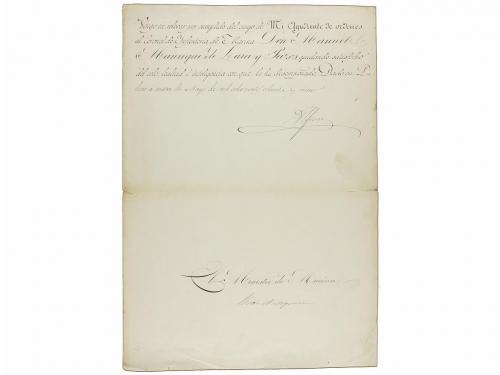 Vengo en relevar por cumplido del cargo de Mi Ayudante de ordenes
al Coronel de Infanteria de Marina Don Manuel
Manrique de Lara y Pazos quedando satisfecho
del celo, lealtad é inteligencia con que lo ha desempeñado. Dado en Pa-
lacio a de Mayo de mil ochocientos ochenta y
El Ministro de Marina